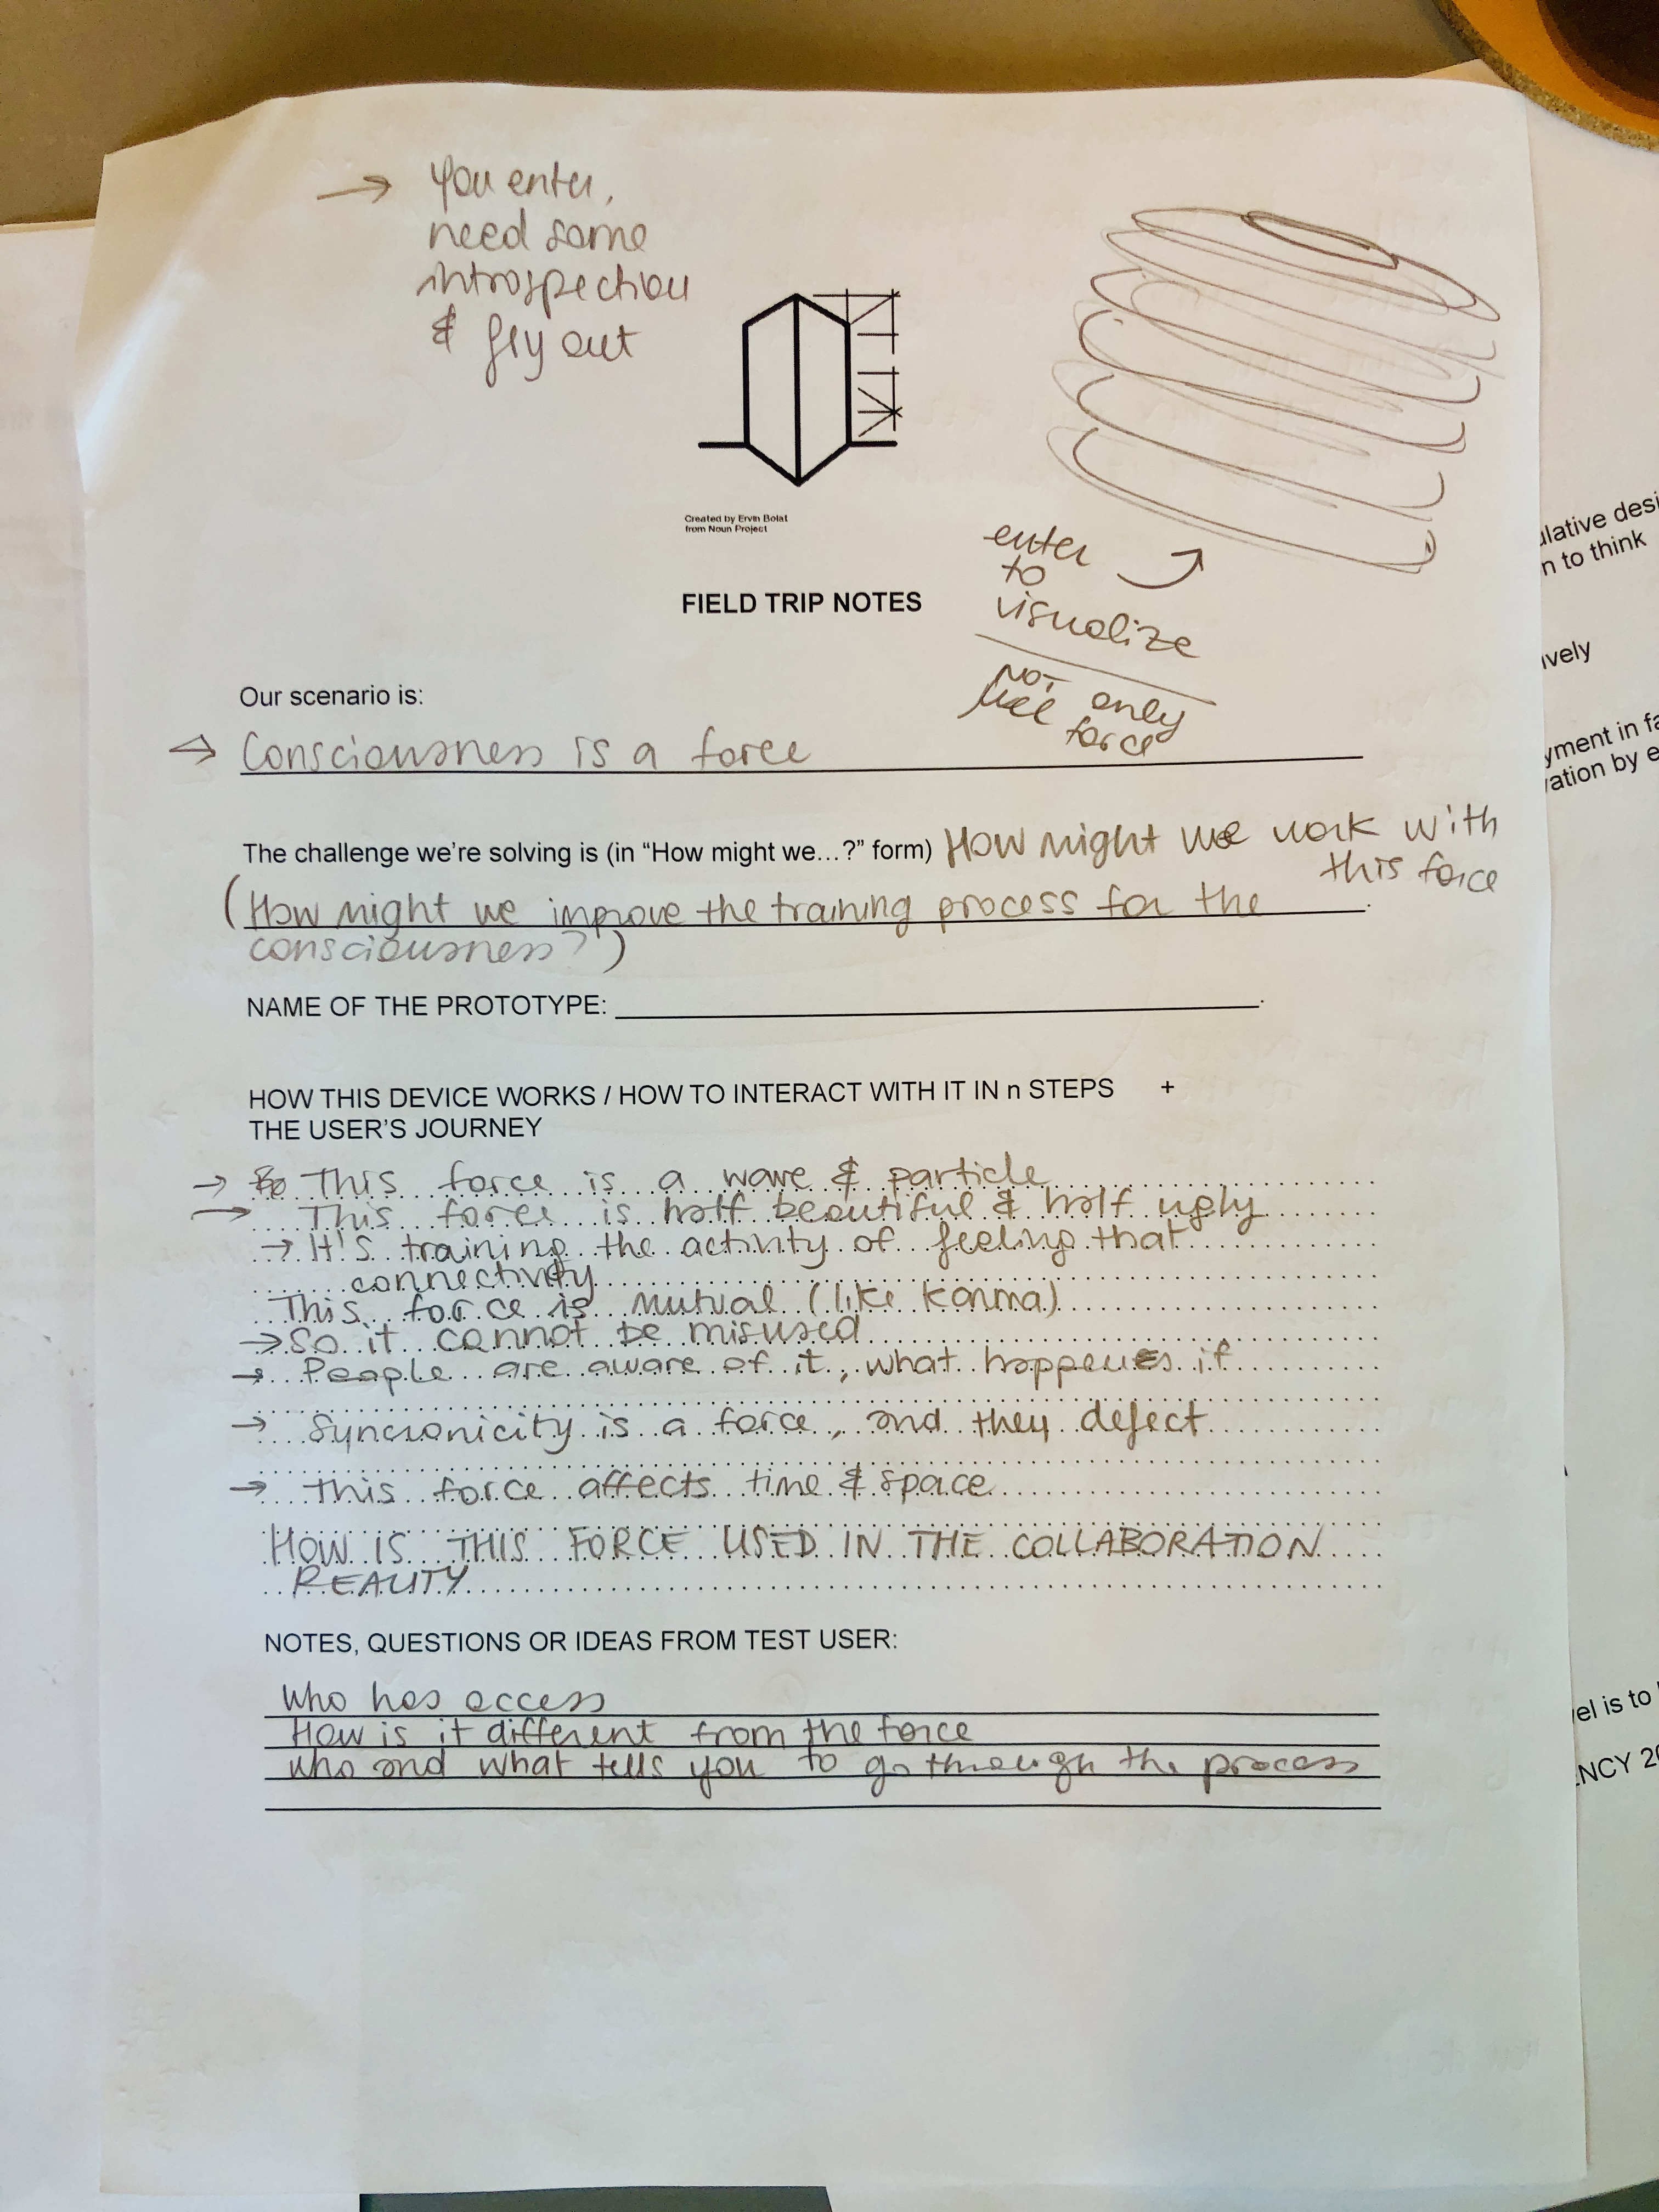 → You enter,
need some
introspection
& fly out
Created by Ervin Bolat
from Noun Project
enter
to
visualize
not only
force
FIELD TRIP NOTES
Our scenario is:
→ Consciousness is a force
The challenge we're solving is (in “How might we...?” form) How might we work with
this force
(How might we improve the training process for the
consciousness?)
NAME OF THE PROTOTYPE:
HOW THIS DEVICE WORKS / HOW TO INTERACT WITH IT IN n STEPS +
THE USER'S JOURNEY
→ This force is a wave & particle
→ This force is half beautiful & half ugly
→ It's training the activity of feeling that
connectivity
This force is mutual (like karma)
→ So it cannot be misused
→ People are aware of it, what happenes if
→ Syncronicity is a force, and they defect
→ this force affects time & space
HOW IS THIS FORCE USED IN THE COLLABORATION
REALITY
NOTES, QUESTIONS OR IDEAS FROM TEST USER:
who has access
How is it different from the force
who and what tells you to go through the process
ulative desi
n to think
ively
yment in fa
vation by e
vel is to
ENCY 20